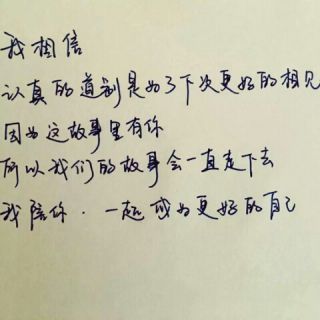 我相信
认真的道别是为了下次更好的相见
因为这故事里有你
所以我们的故事会一直走下去
我陪你．一起成为更好的自己